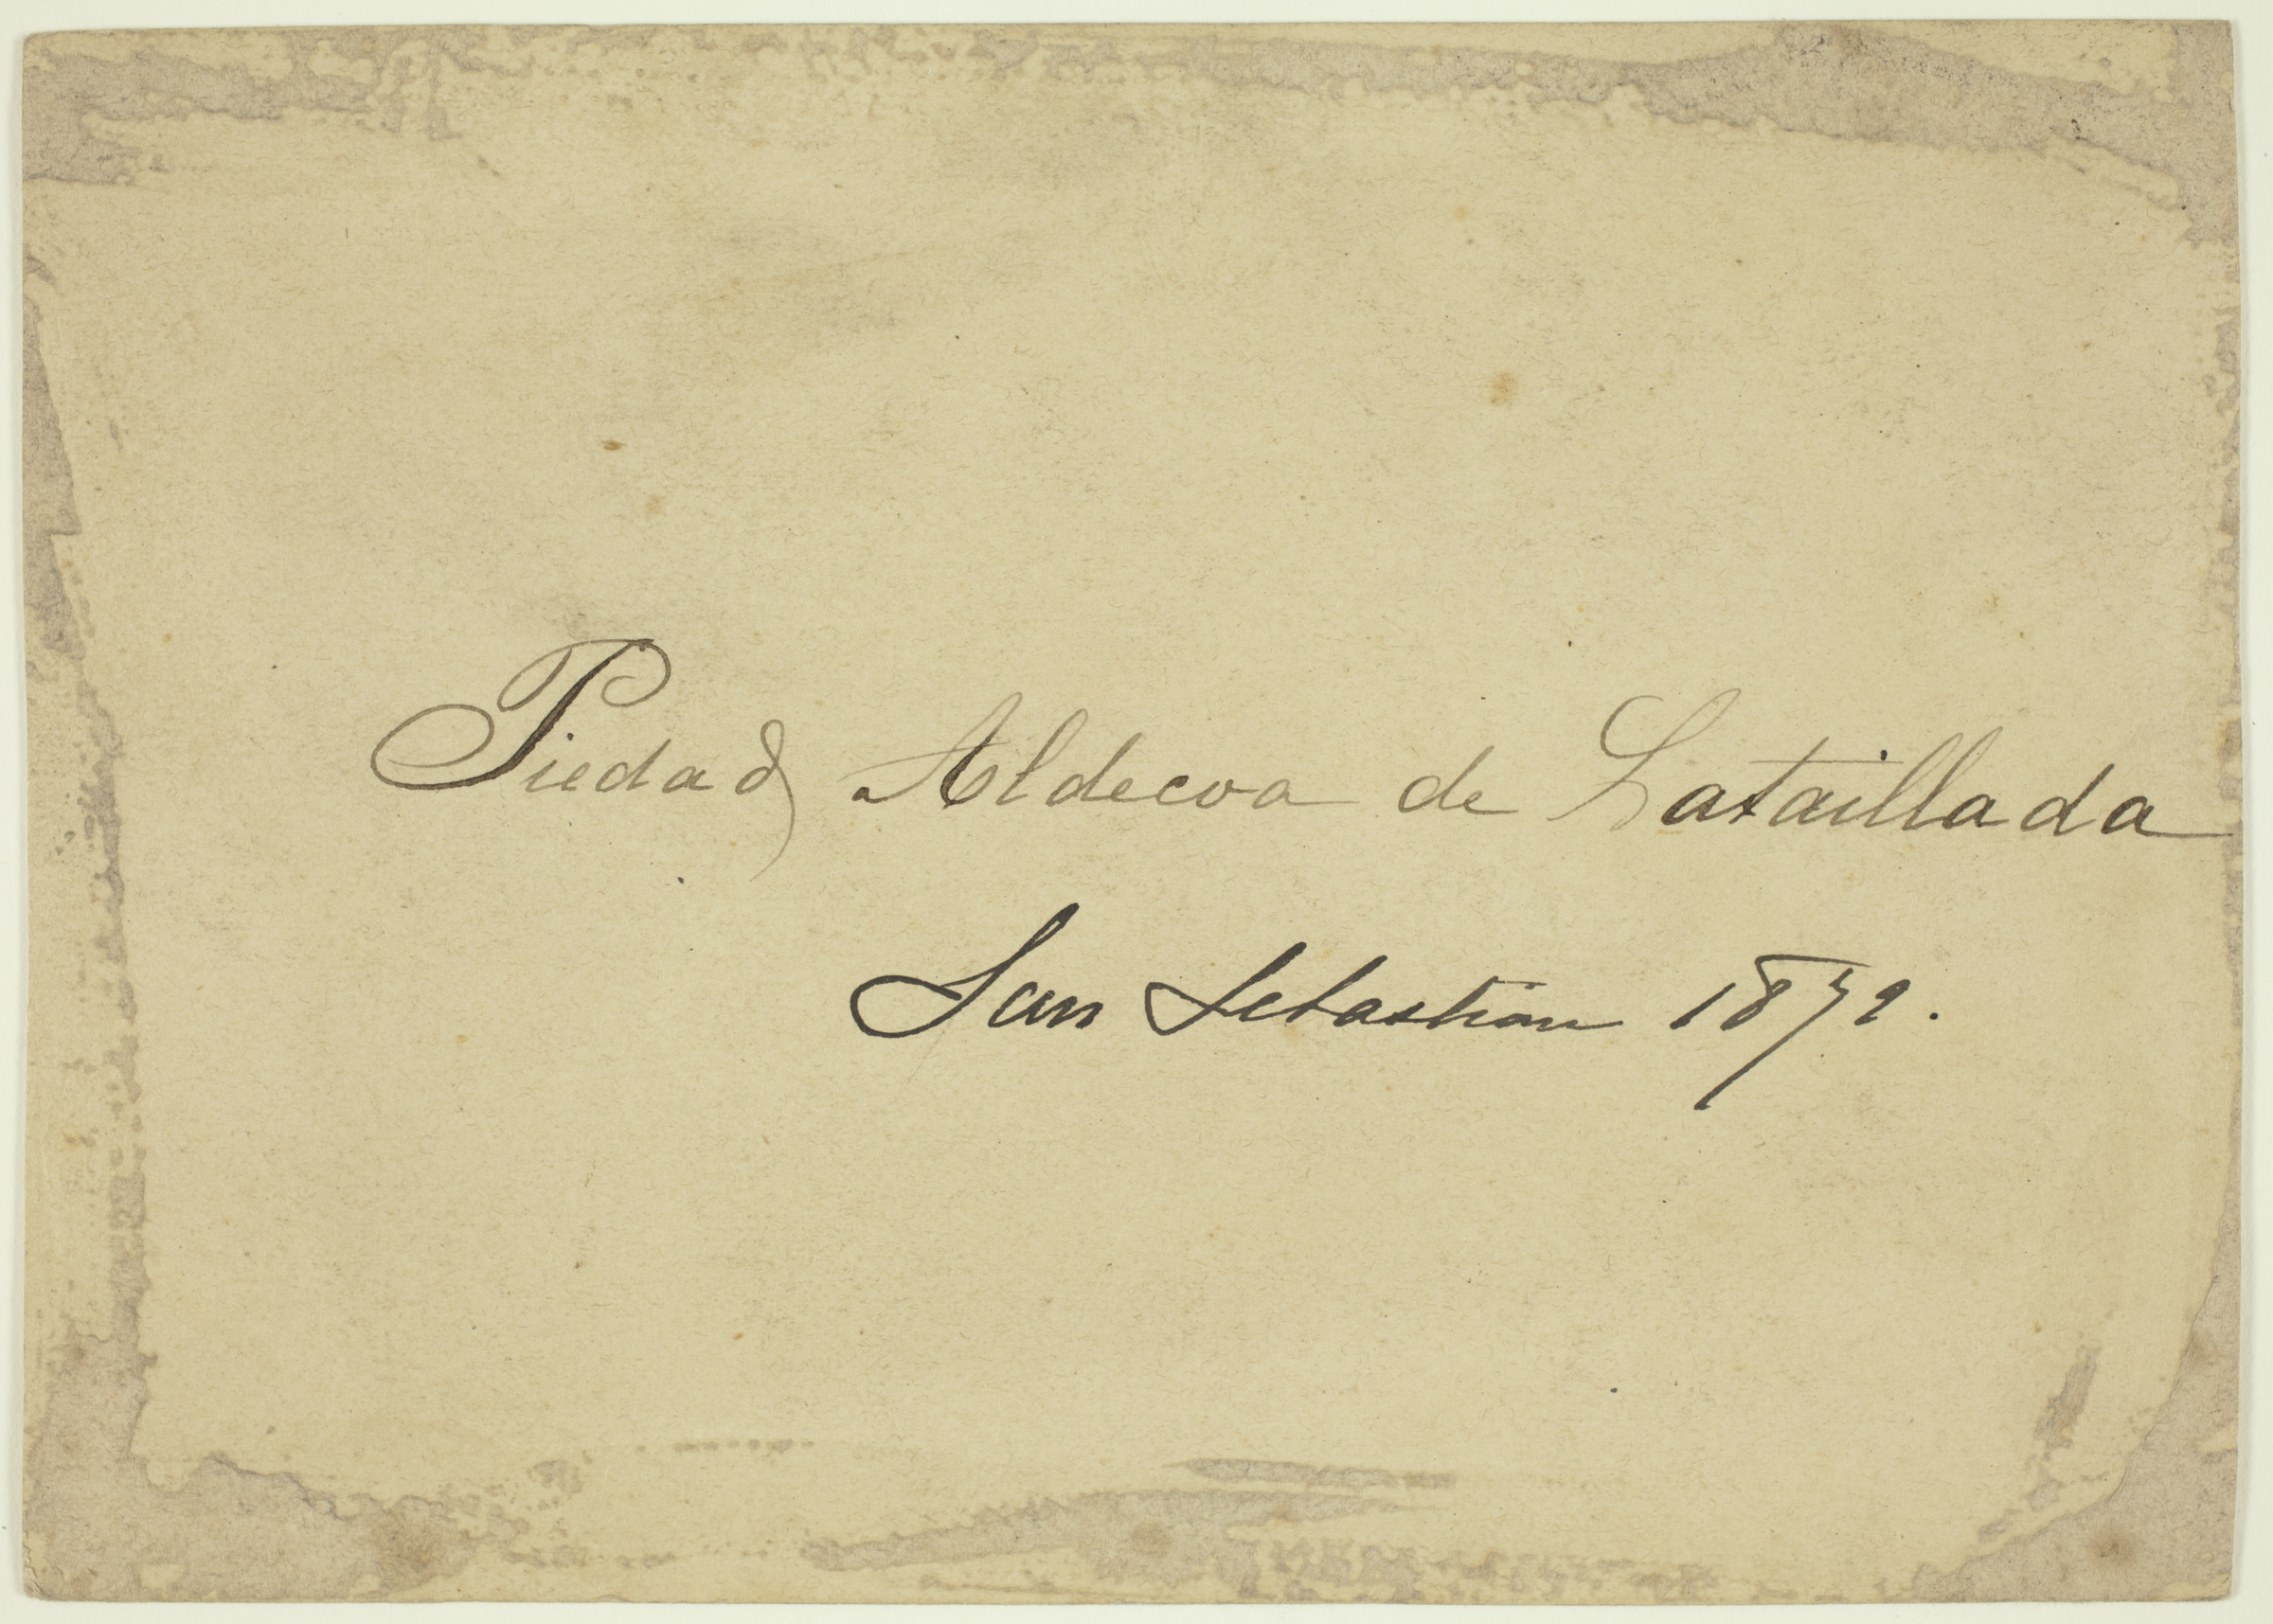 Piedad Aldecoa de Lataillada
San Sebastian 1879.